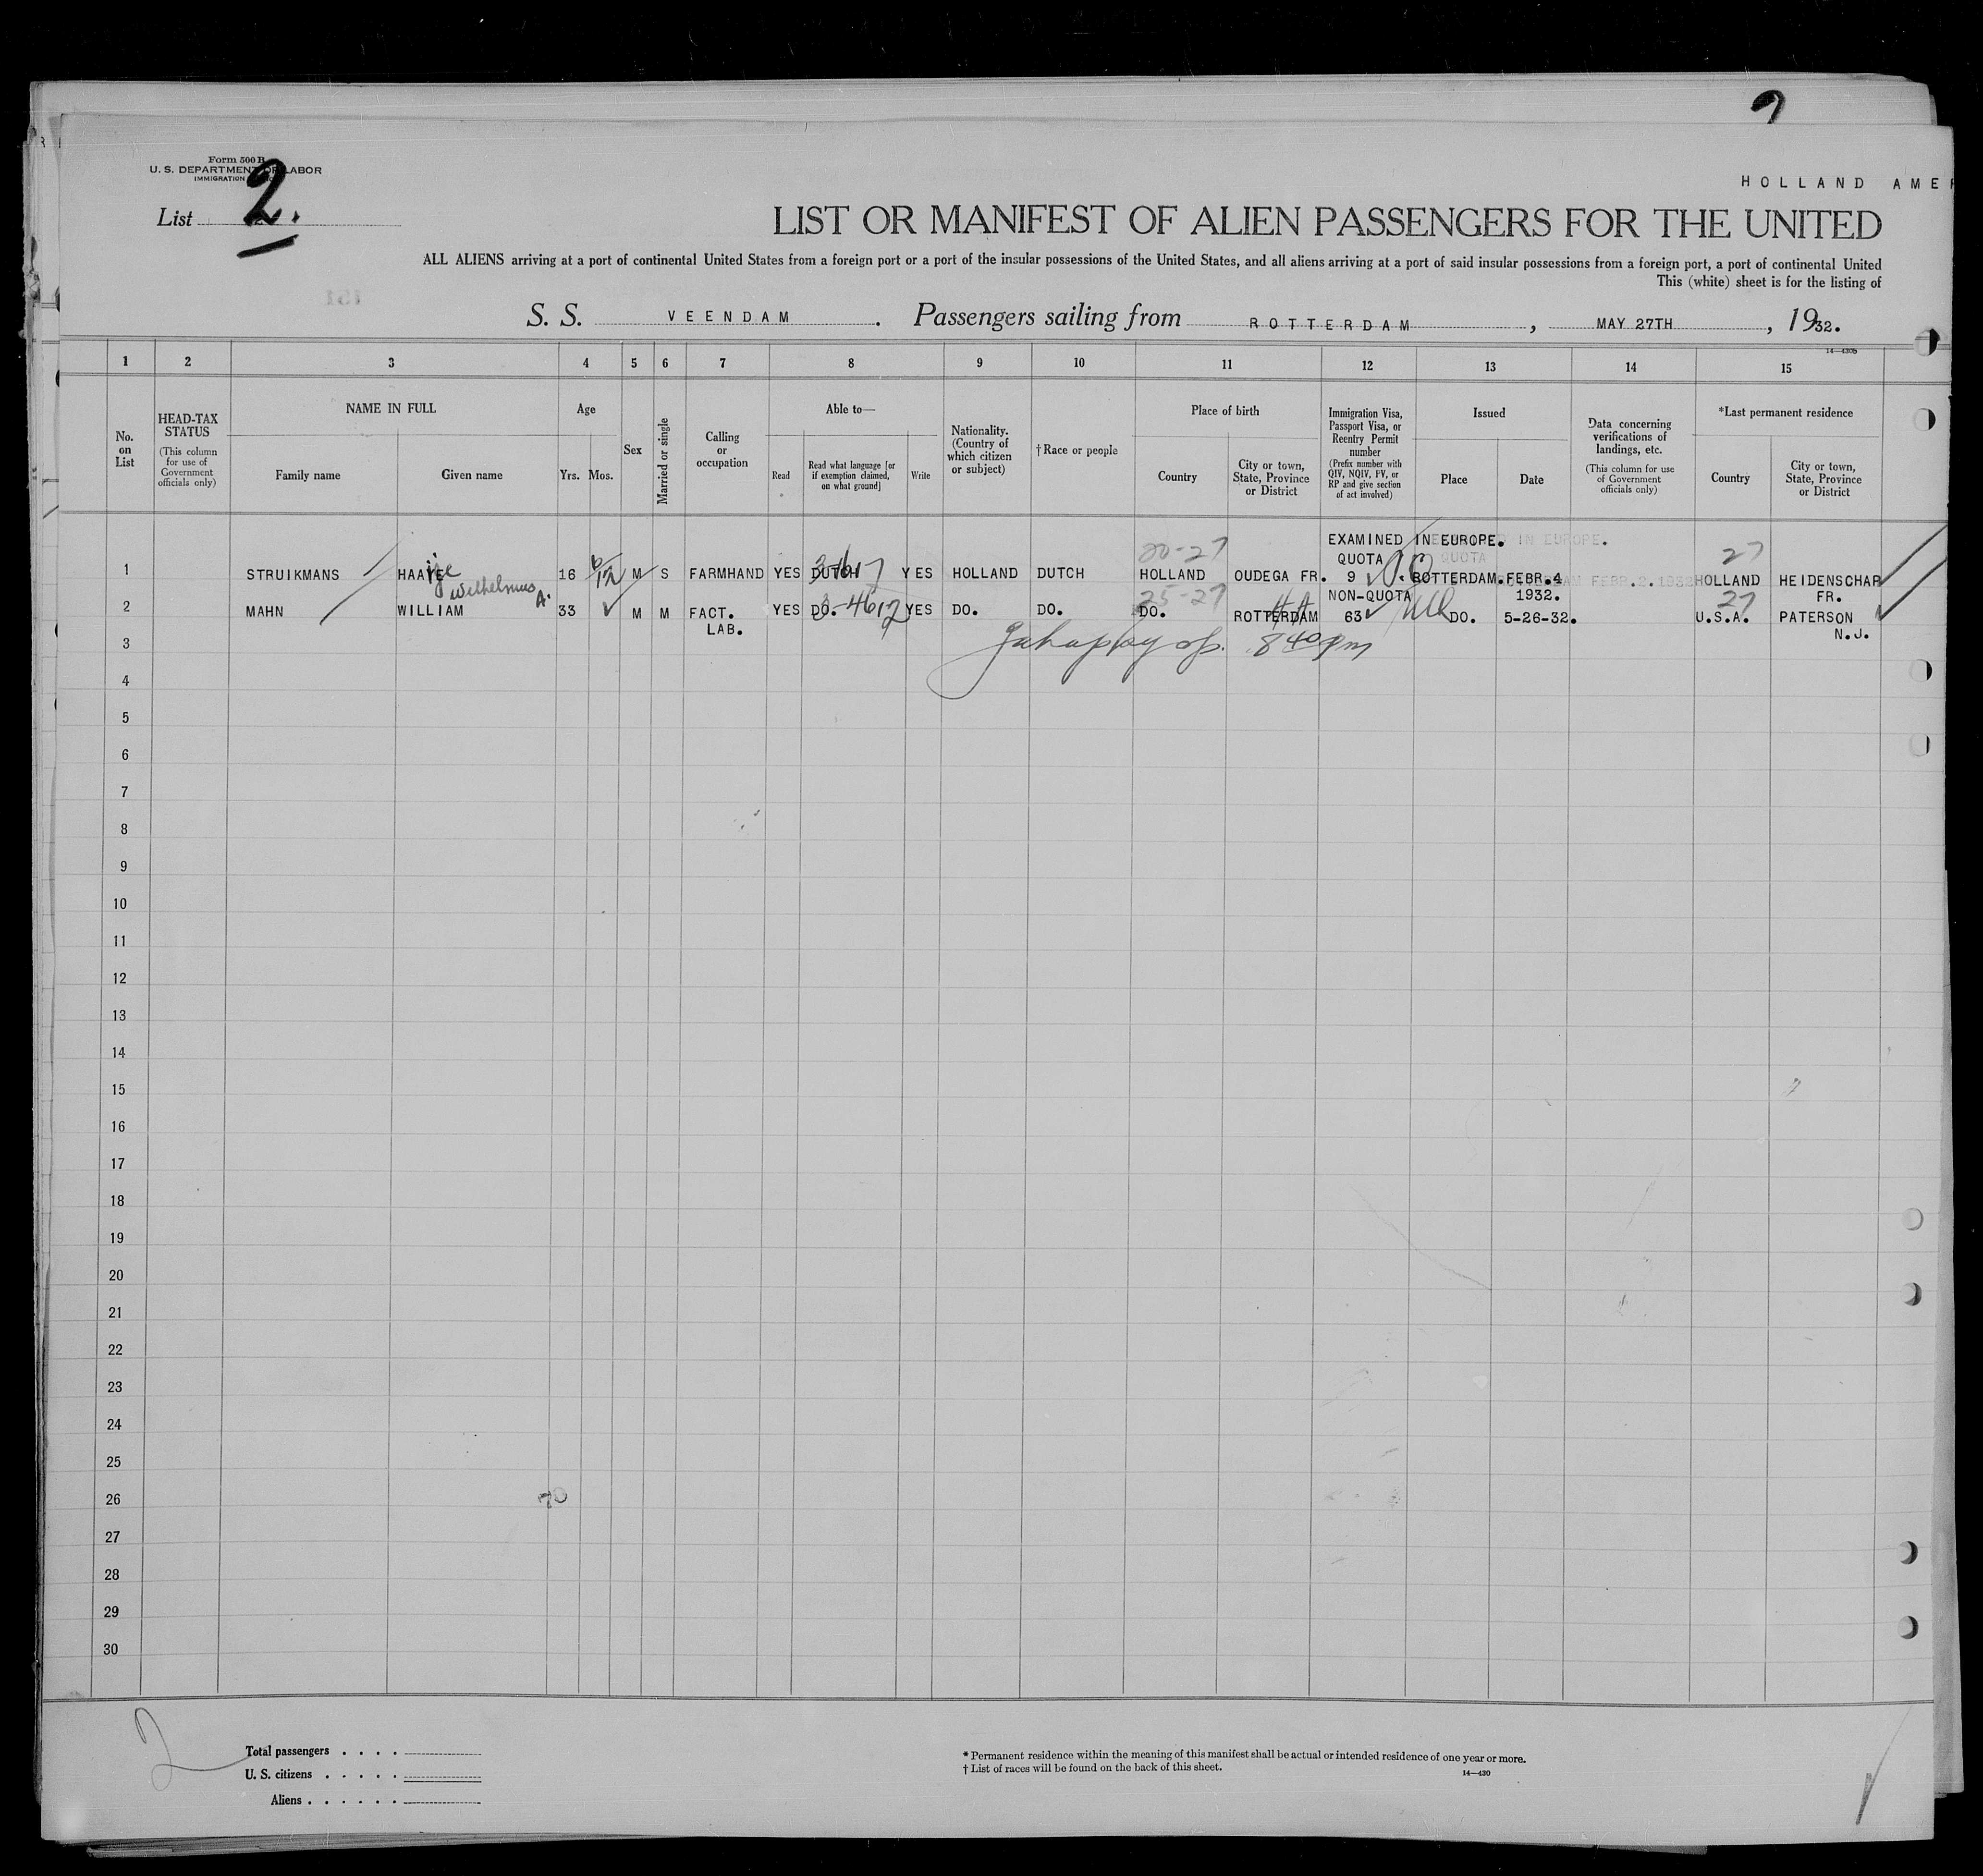 Form 500 B
U. S. DEPARTMENT OF LABOR
IMMIGRATION
List 2.
HOLLAND AMER
LIST OR MANIFEST OF ALIEN PASSENGERS FOR THE UNITED
ALL ALIENS arriving at a port of continental United States from a foreign port or a port of the insular possessions of the United States, and all aliens arriving at a port of said insular possessions from a foreign port, a port of continental United
This (white) sheet is for the listing of
S. S. VEENDAM. Passengers sailing from ROTTERDAM, MAY 27TH, 1932.
14—430B
1 2 3 4 5 6 7 8 9 10 11 12 13 14 15
No. on List
HEAD-TAX STATUS (This column for use of Government officials only)
NAME IN FULL
Family name Given name
Age
Yrs. Mos.
Sex
Married or single
Calling or occupation
Able to—
Read Read what language [or if exemption claimed, on what ground] Write
Nationality. (Country of which citizen or subject)
†Race or people
Place of birth
Country City or town, State, Province or District
Immigration Visa, Passport Visa, or Reentry Permit number (Prefix number with QIV, NQIV, PV, or RP and give section of act involved)
Issued
Place Date
Data concerning verifications of landings, etc. (This column for use of Government officials only)
*Last permanent residence
Country City or town, State, Province or District
EXAMINED IN EUROPE.
20-27 QUOTA 27
1 STRUIKMANS HAAYE 16 6/12 M S FARMHAND YES DUTCH YES HOLLAND DUTCH HOLLAND OUDEGA FR. 9 ROTTERDAM. FEBR.4 1932. HOLLAND HEIDENSCHAP FR.
Wilhelmus A.
25-27 NON-QUOTA 27
2 MAHN WILLIAM 33 M M FACT. LAB. YES DO. YES DO. DO. DO. ROTTERDAM 63 DO. 5-26-32. U.S.A. PATERSON N.J.
3 8 40 pm
4
5
6
7
8
9
10
11
12
13
14
15
16
17
18
19
20
21
22
23
24
25
26
27
28
29
30
2
Total passengers . . . .
U. S. citizens . . . . .
Aliens . . . . . .
* Permanent residence within the meaning of this manifest shall be actual or intended residence of one year or more.
† List of races will be found on the back of this sheet.
14—430